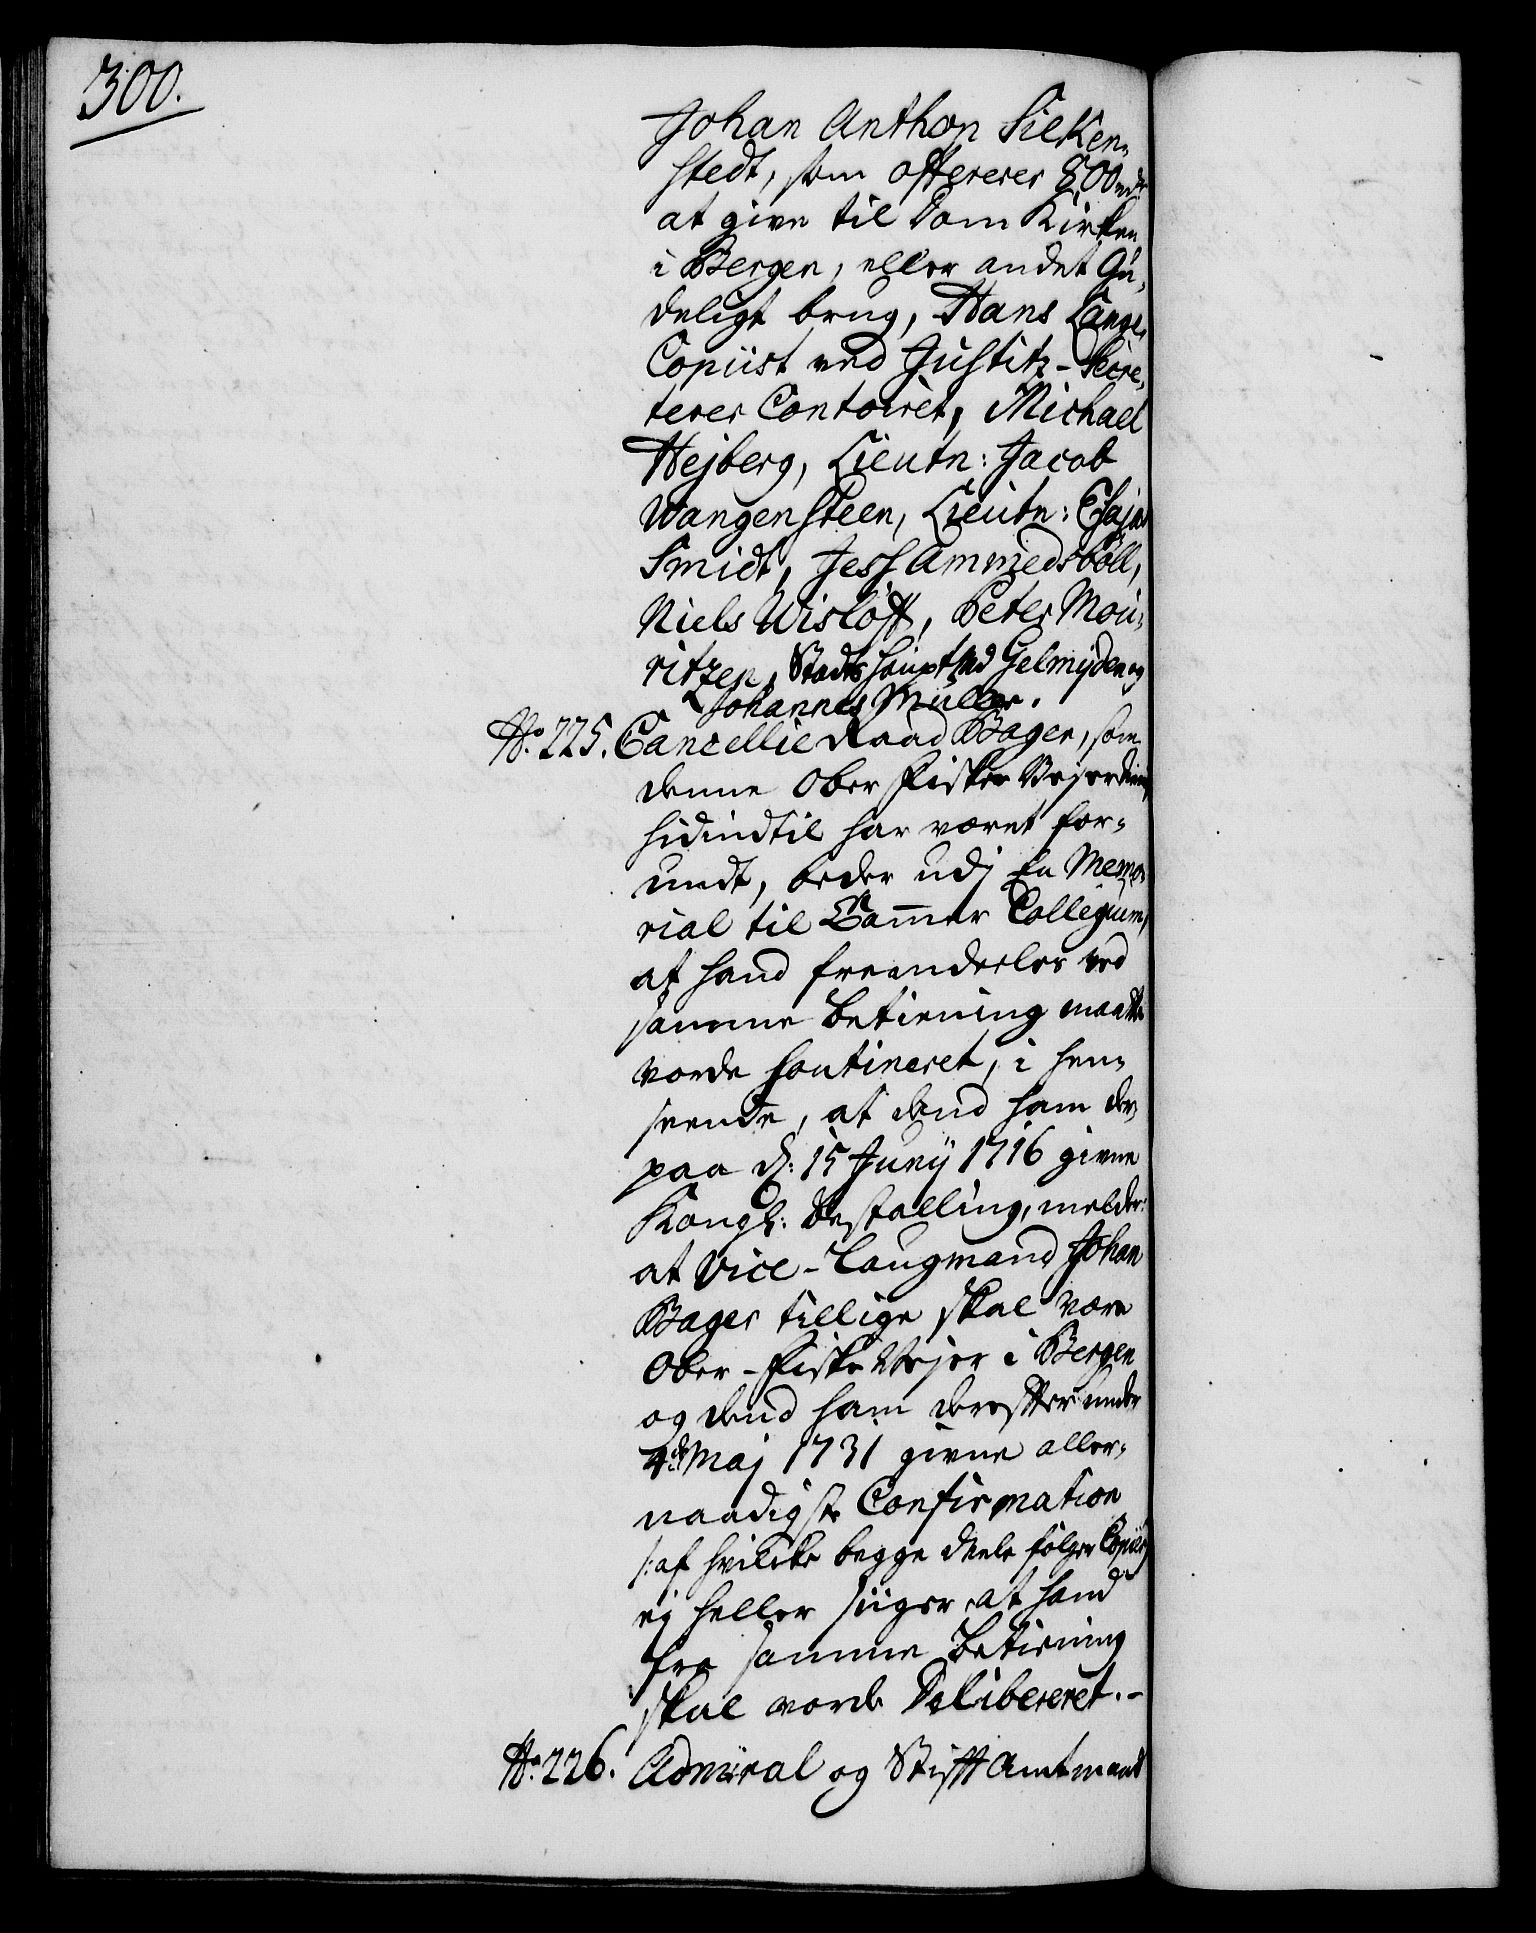 300.
Johan Anthon Sieken-
stedt, som offererer 800 rd
at give til Dom Kirken
i Bergen, eller andet Gu-
deligt brug, Hans Lange,
Copiist ved Justitz-Secre-
terer Contoiret, Michael
Hejberg, Lieutn: Jacob
Wangensteen, Lieutn: Esajas
Smidt, Jess Ammedsböll,
Niels Wislöff, Peter Mou-
ritzen, Stads hauptmd Gelmÿden og
Johannes Müller.
No. 225. Cancellie Raad Bager, som
denne Ober Fiske Vejer
hidindtil har været for-
undt, beder udj En Memo-
rial til Cammer Collegium,
at hand fremdeeles ved
samme betiening maatte
vorde Continueret, i hen-
seende, at dend ham der
paa d: 15 Junÿ 1716 givne
Kongl: bestalling, melder:
at Vice-Laugmand Johan
Bager tillige skal være
Ober-Fiske Vejer i Bergen
og dend ham derefter under
4de Maj 1731 givne aller-
naadigste Confirmation
/: af hvilcke begge deele følger Copier /
ej heller siiger, at hand
fra samme betiening
skal vorde Delibereret. -
No. 226. Admiral og Stifft Amtmand